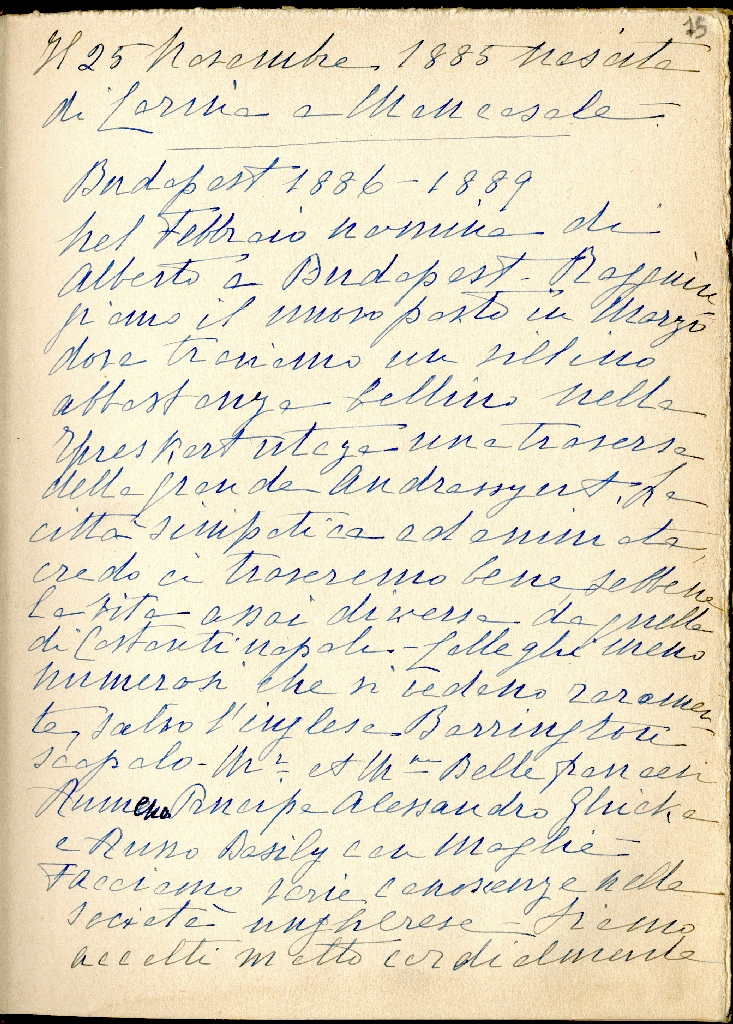 15
Il 25 Novembre 1885 nascita
di Carina a Moncasale =
Budapest 1886 - 1889
nel Febbraio nomina di
Alberto a Budapest - Raggiun
giamo il nuovo posto in Marzo
dove troviamo un villino
abbastanza bellino nella
Epreskert utcza una traversa
della grande Andrassy ut. La
città simpatica ed animata,
credo ci troveremo bene sebbene
la vita assai diversa da quella
di Costantinopoli - Colleghi meno
numerosi che si vedono raramen
te, salvo l'inglese Barrington
scapolo - Mr et Mme Belle francesi
Rumeno Principe Alessandro Ghicka
e Russo Basily con Moglie =
Facciamo varie conoscenze nella
società ungherese - Siamo
accolti molto cordialmente